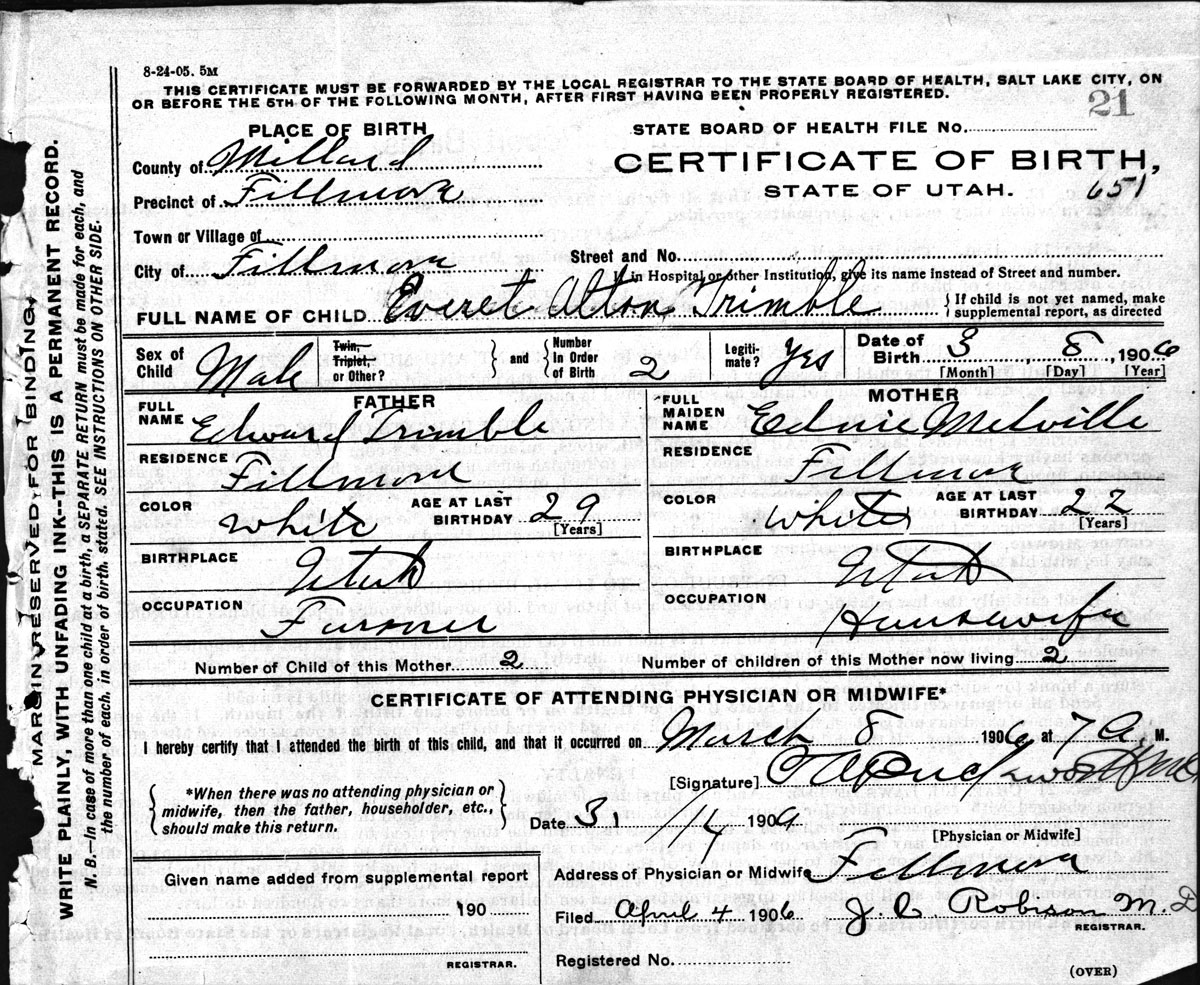 8-24-05. 5M
THIS CERTIFICATE MUST BE FORWARDED BY THE LOCAL REGISTRAR TO THE STATE BOARD OF HEALTH, SALT LAKE CITY, ON
OR BEFORE THE 5TH OF THE FOLLOWING MONTH, AFTER FIRST HAVING BEEN PROPERLY REGISTERED.
21
PLACE OF BIRTH
STATE BOARD OF HEALTH FILE No.
County of Millard
CERTIFICATE OF BIRTH,
Precinct of Fillmore
STATE OF UTAH. 651
Town or Village of
City of Fillmore
Street and No.
If in Hospital or other Institution, give its name instead of Street and number.
FULL NAME OF CHILD Everet Alton Trimble
{If child is not yet named, make
supplemental report, as directed
Sex of Child Male
Twin, Triplet, or Other?
} and {
Number In Order of Birth 2
Legiti-mate? Yes
Date of Birth 3 8, 1906
[Month] [Day] [Year]
FATHER
FULL NAME Edward Trimble
RESIDENCE Fillmore
COLOR White
AGE AT LAST BIRTHDAY 29
[Years]
BIRTHPLACE Utah
OCCUPATION Farmer
MOTHER
*FULL MAIDEN NAME Melville
RESIDENCE Fillmore
COLOR White
AGE AT LAST BIRTHDAY 22
[Years]
BIRTHPLACE Utah
OCCUPATION Housewife
Number of Child of this Mother 2
Number of children of this Mother now living 2
CERTIFICATE OF ATTENDING PHYSICIAN OR MIDWIFE*
I hereby certify that I attended the birth of this child, and that it occurred on March 8 1906 at 7 A. M.
[Signature]
{*When there was no attending physician or
midwife, then the father, householder, etc.,
should make this return.}
Date 3, 14 1906
[Physician or Midwife]
Given name added from supplemental report
190
REGISTRAR.
Address of Physician or Midwife Fillmore
Filed April 4 1906 J. C. Robison M. D
REGISTRAR.
Registered No.
(OVER)
MARGIN RESERVED FOR BINDING.
WRITE PLAINLY, WITH UNFADING INK--THIS IS A PERMANENT RECORD.
N. B.--In case of more than one child at a birth, a SEPARATE RETURN must be made for each, and
the number of each, in order of birth, stated. SEE INSTRUCTIONS ON OTHER SIDE.